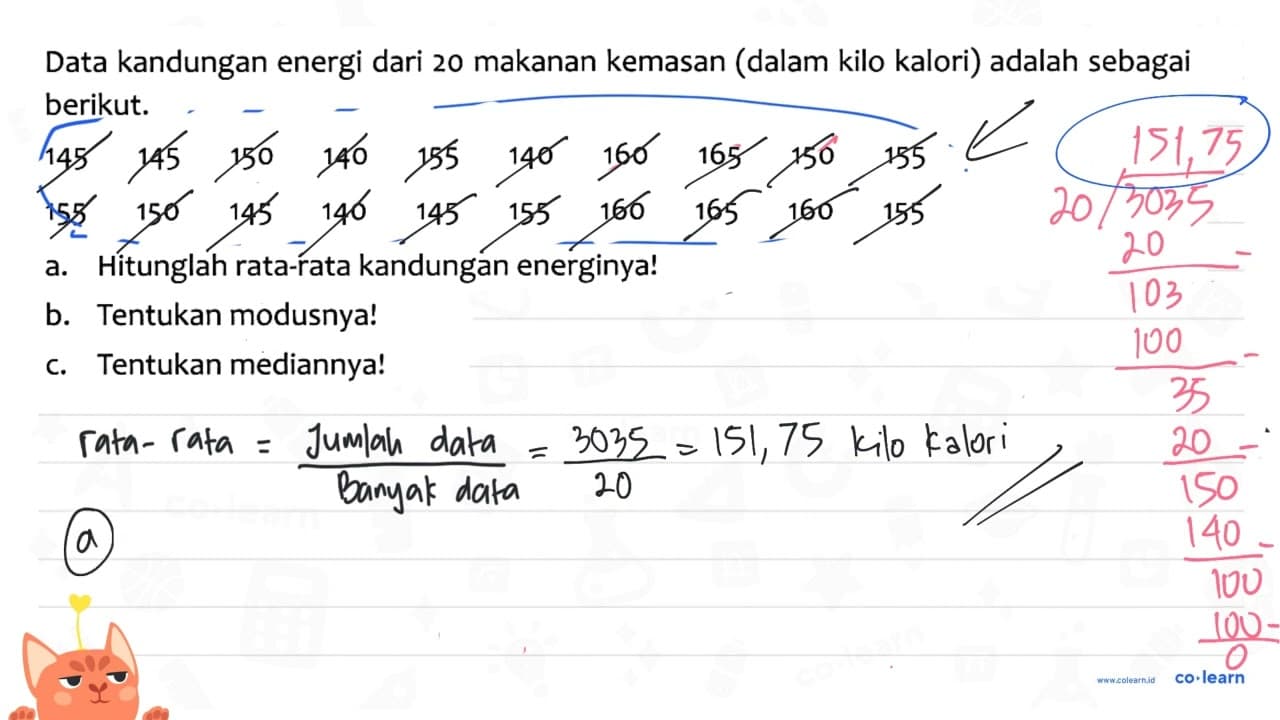 Data kandungan energi dari 20 makanan kemasan (dalam kilo kalori) adalah sebagai
berikut.
145 145 150 140 155 140 160 165 150 155
155 150 145 140 145 155 160 165 160 155
a. Hitunglah rata-rata kandungan energinya!
b. Tentukan modusnya!
c. Tentukan mediannya!
rata-rata = Jumlah data / Banyak data = 3035 / 20 = 151,75 kilo kalori
a
151,75
20 / 3035
20 -
103
100 -
35
20 -
150
140 -
100
100 -
0
co·learn
co·learn
www.colearn.id co·learn